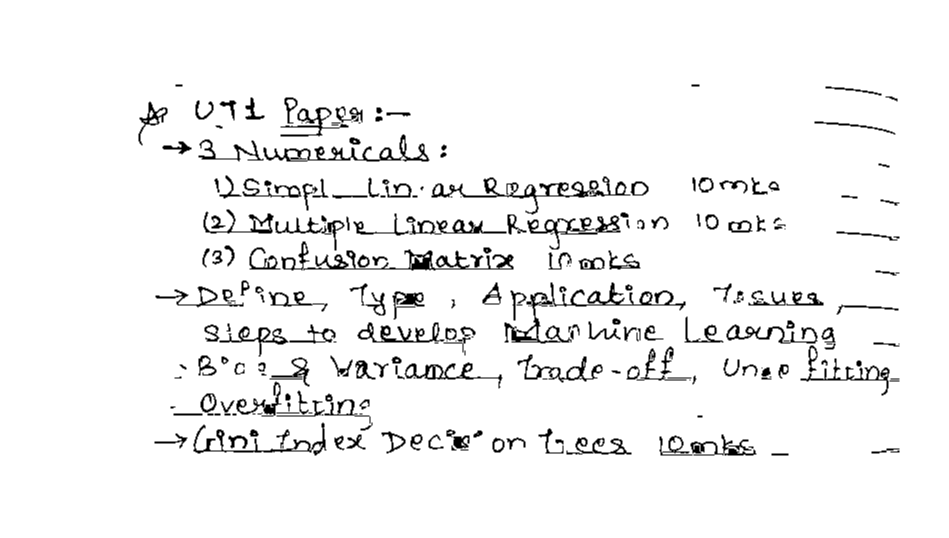 UT1 Paper :-
→ 3 Numericals :
1) Simpl Linear Regression 10 mks
(2) Multiple Linear Regression 10 mks
(3) Confusion Matrix 10 mks
→ Define, Type, Application, Issues,
steps to develop Machine Learning
Bias & Variance, Trade-off, Unde fitting
Overfitting
→ Gini Index Decision Trees 10 mks